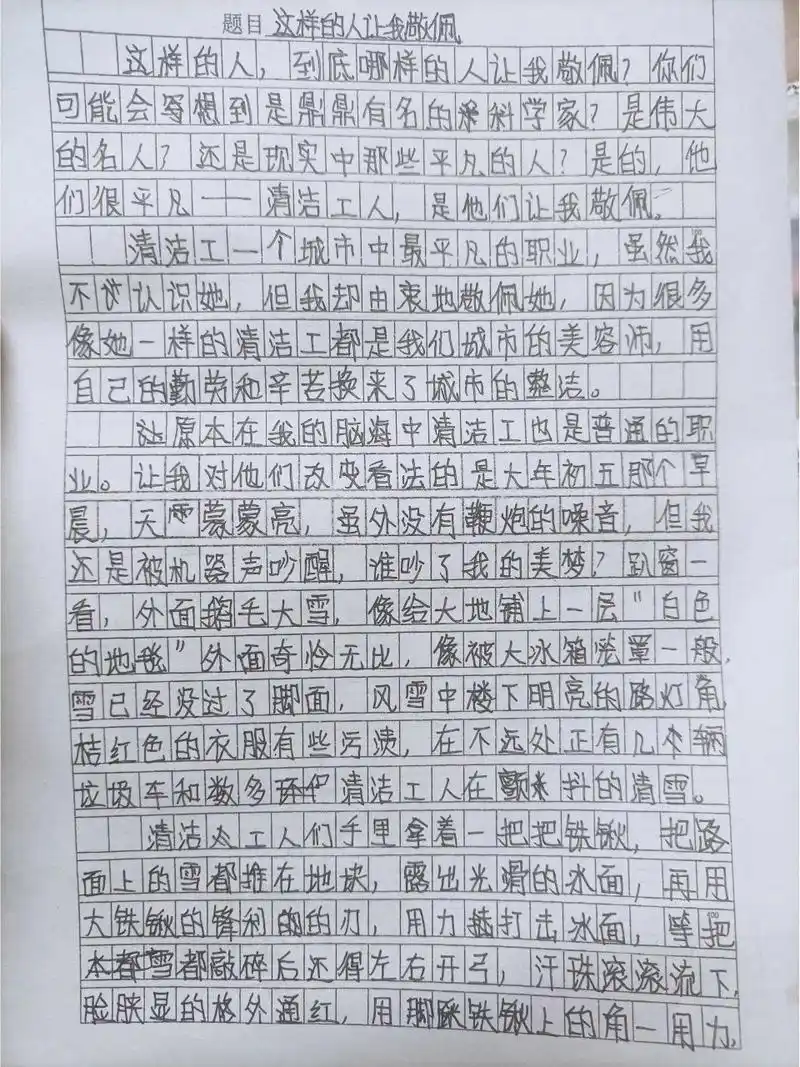 题目 这样的人让我敬佩
这样的人，到底哪样的人让我敬佩？你们
可能会写想到是鼎鼎有名的科学家？是伟大
的名人？还是现实中那些平凡的人？是的，他
们很平凡——清洁工人，是他们让我敬佩。
清洁工一个城市中最平凡的职业，虽然我
不认识她，但我却由衷地敬佩她，因为很多
像她一样的清洁工都是我们城市的美容师，用
自己的勤劳和辛苦换来了城市的整洁。
原本在我的脑海中清洁工也是普通的职
业。让我对他们改变看法的是大年初五那个早
晨，天蒙蒙亮，虽外没有鞭炮的噪音，但我
还是被机器声吵醒，谁吵了我的美梦？趴窗一
看，外面鹅毛大雪，像给大地铺上一层"白色
的地毯"外面奇怜无比，像被大冰箱笼罩一般，
雪已经没过了脚面，风雪中楼下明亮的路灯角，
桔红色的衣服有些污渍，在不远处正有几辆
垃圾车和数多清洁工人在颤抖的清雪。
清洁工人们手里拿着一把把铁锹，把路
面上的雪都推在地块，露出光滑的冰面，再用
大铁锹的锋利的刃，用力打击冰面，等把
雪都敲碎后还得左右开弓，汗珠滚滚流下，
脸胱显的格外通红，用脚踩铁锹上的角一用力，